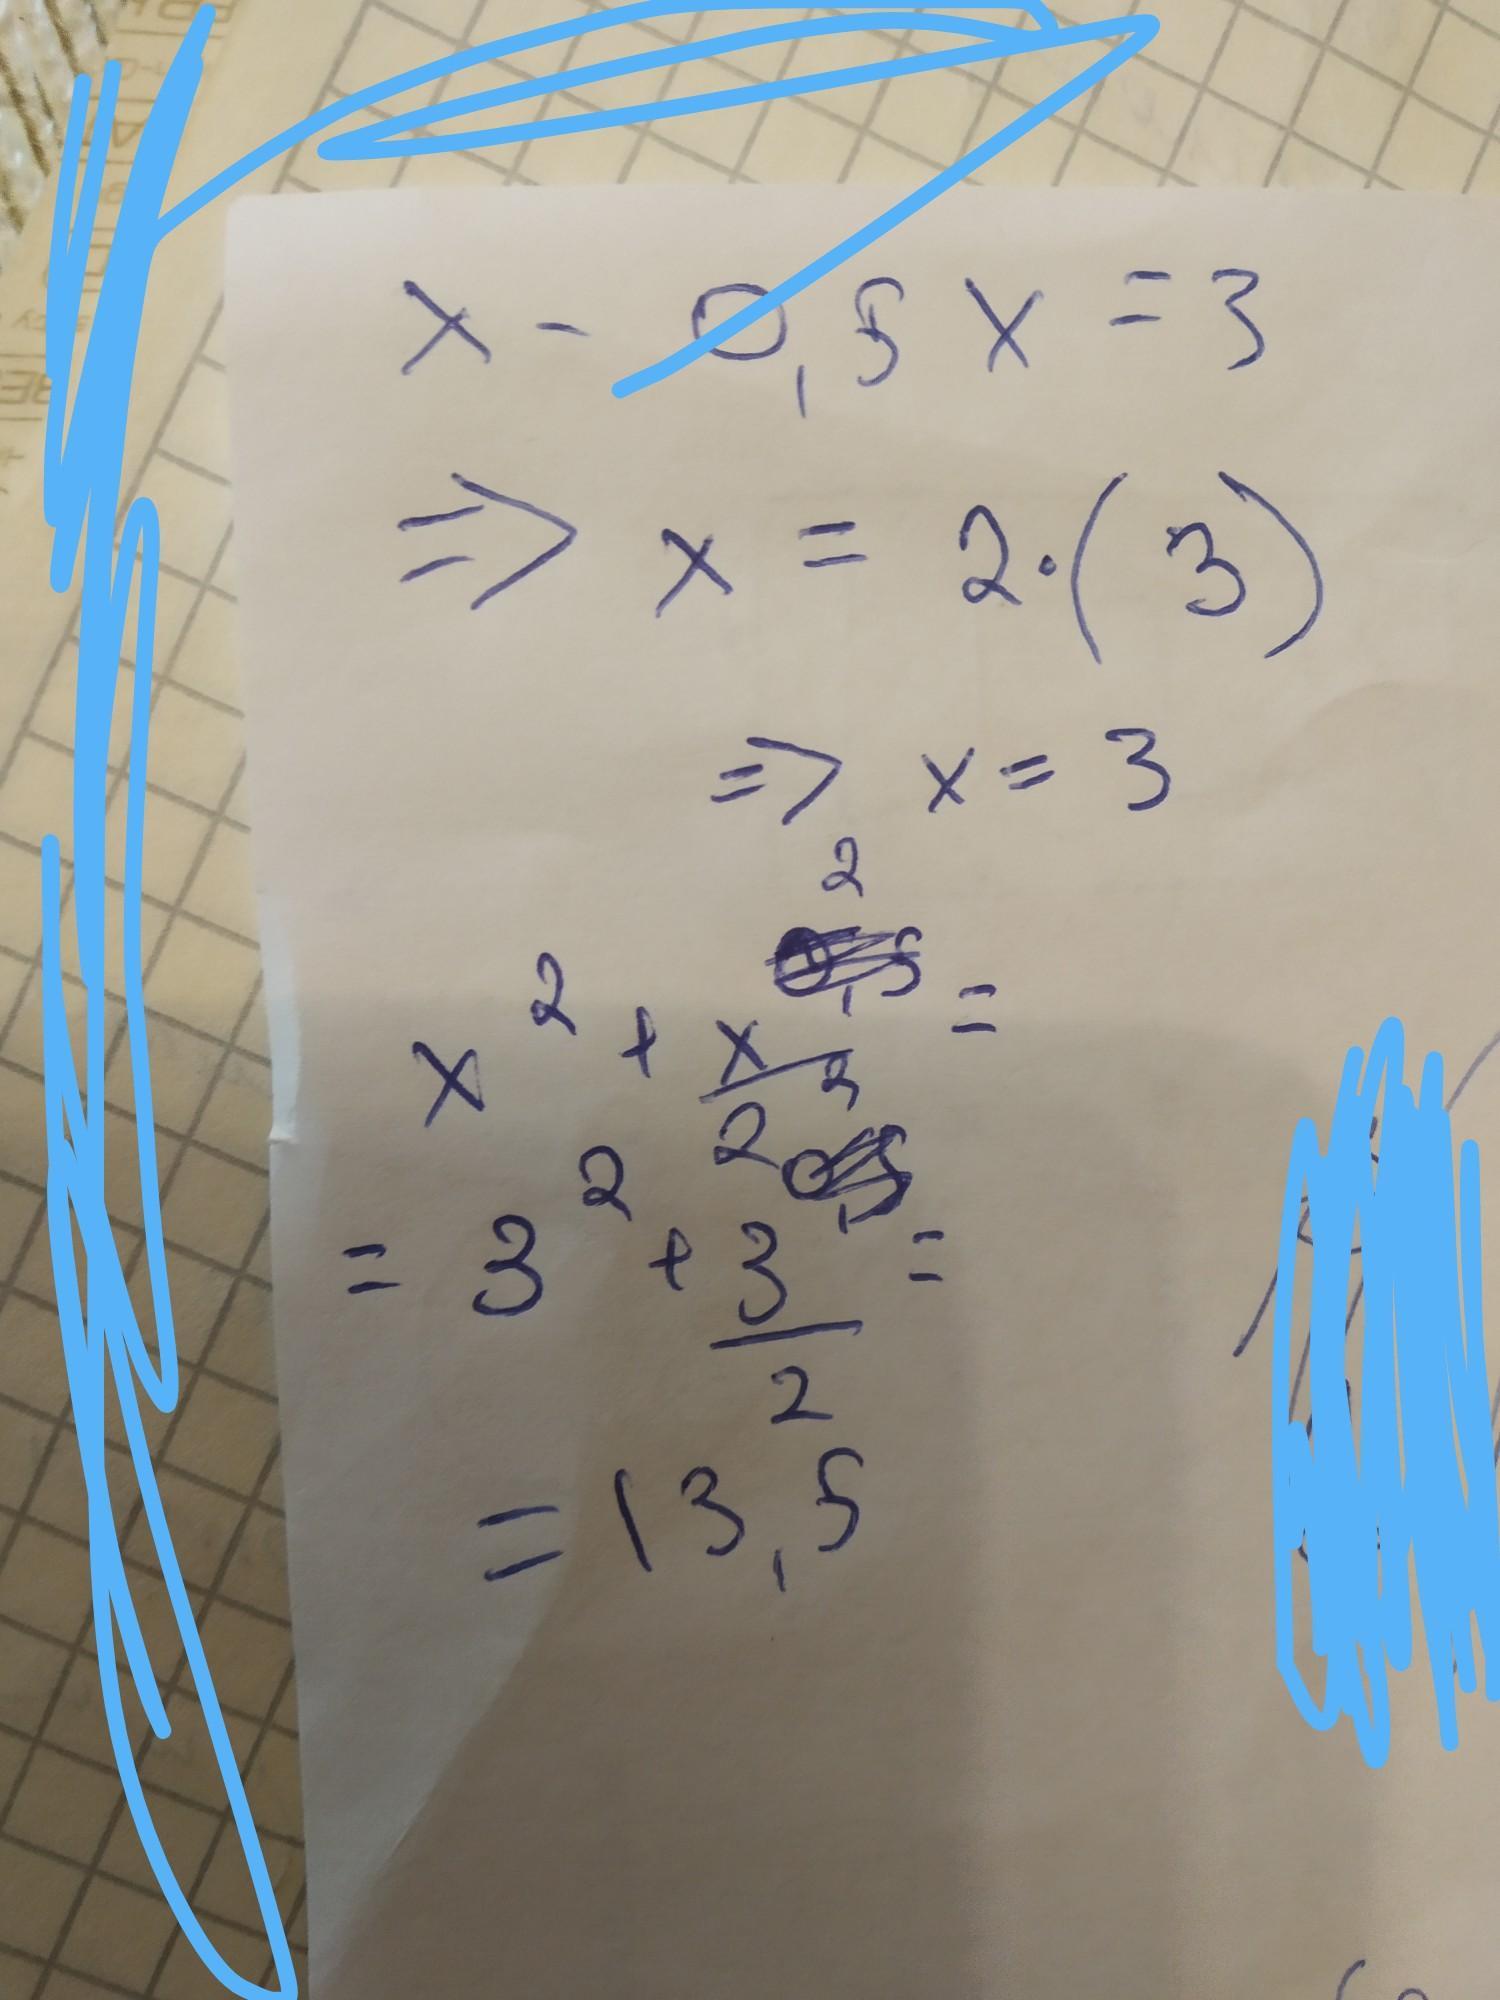 x - 0,5 x = 3
=> x = 2·(3)
=> x = 3
x² + x²/2² =
= 3² + 3/2 =
= 13,5